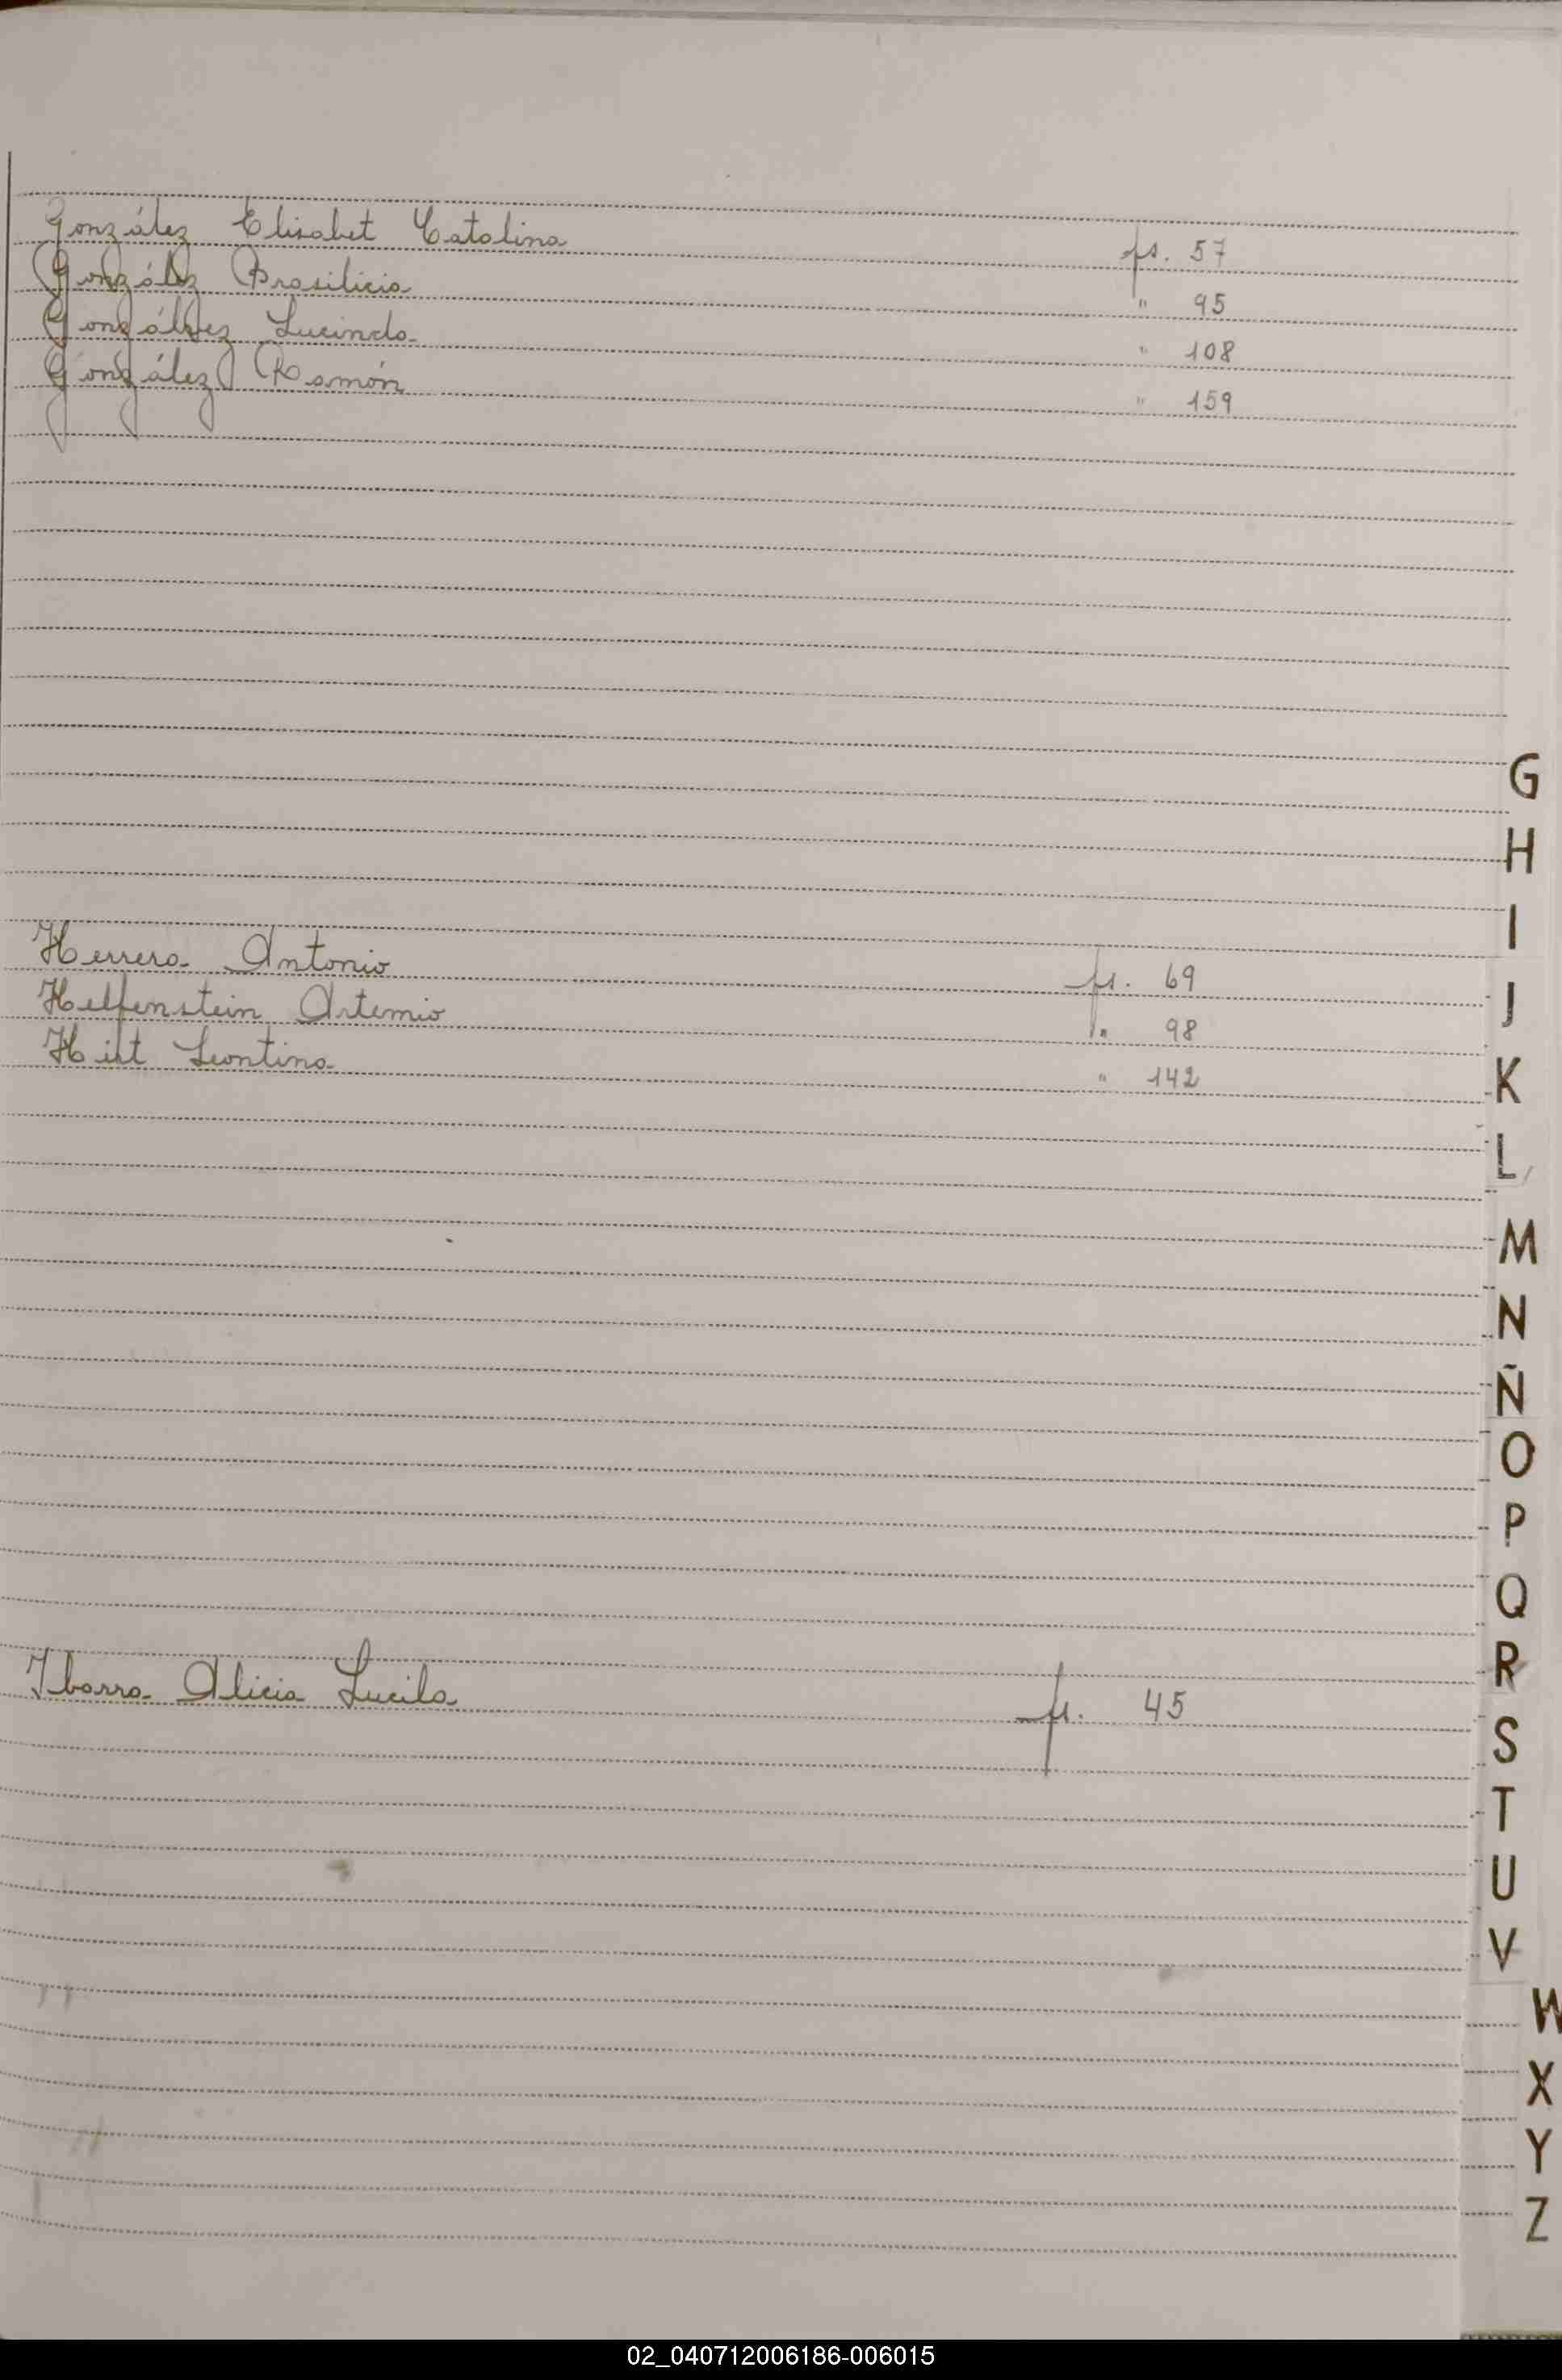 González Elisabet Catalina fs. 57
González Brasilicia " 95
Gonzálvez Lucinda " 108
González Ramón " 159
Herrera Antonio fs. 69
Helfenstein Artemio " 98
Hirt Leontina " 142
Ibarra Alicia Lucila fs. 45
G
H
I
J
K
L
M
N
Ñ
O
P
Q
R
S
T
U
V
W
X
Y
Z
02_040712006186-006015